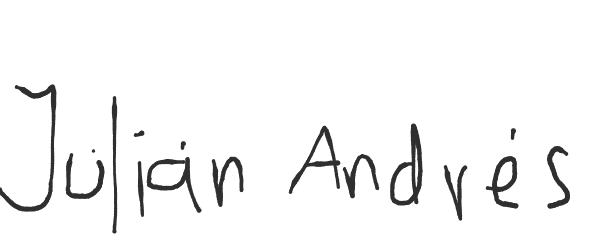 Julián Andrés